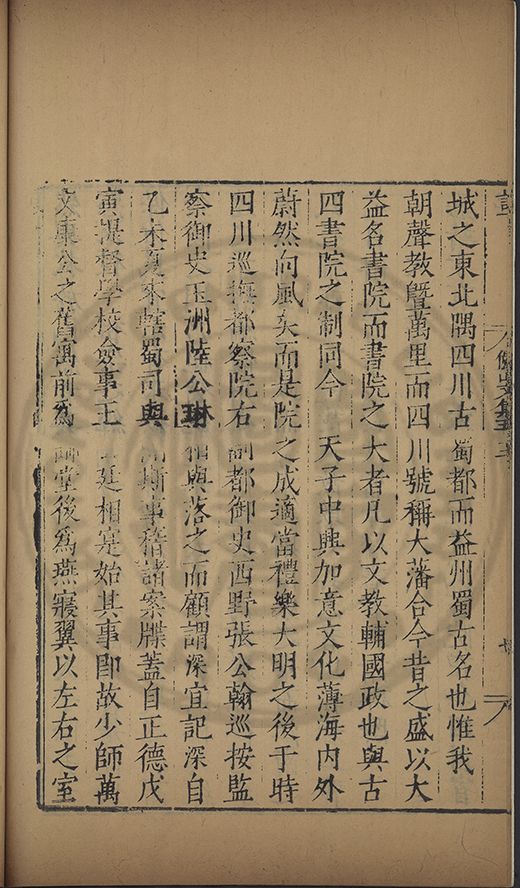 城之東北隅四川古蜀都而益州蜀古名也惟我
朝聲教曁萬里而四川號稱大藩合今昔之盛以大
益名書院而書院之大者凡以文教輔國政也與古
四書院之制同今 天子中興加意文化薄海內外
蔚然向風矣而是院之成適當禮樂大明之後于時
四川巡撫都察院右副都御史西野張公翰巡按監
察御史玉洲陸公琳相與落之而顧謂深宜記深自
乙未夏來轄蜀司與斯事稽諸案牒蓋自正德戊
寅提督學校僉事王廷相寔始其事卽故少師萬
文康公之舊寓前爲堂後爲燕寢翼以左右之室